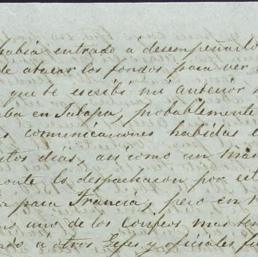 había entrado a desempeñarlo
de atacar los fondos para ver
que te escribí mi anterior
ba en Jalapa, probablemente
comunicaciones habidas
tos días, así como un mas
lo despacharon por
para Francia, pero en
uno de los
a otros Gefes y oficiales